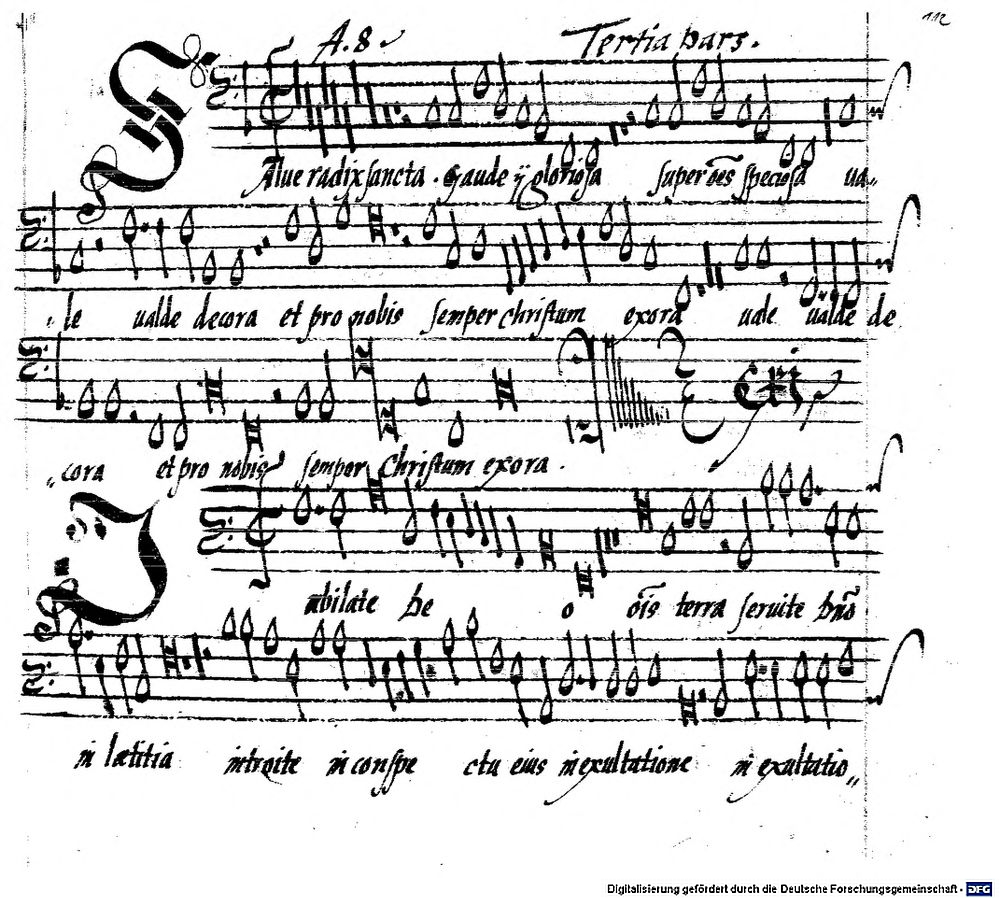 112
A.8. Tertia pars.
Salue radix sancta. Gaude ij gloriosa super oēs speciosa ua„
„le ualde decora et pro nobis semper christum exora uale ualde de
„cora et pro nobis semper Christum exora.
Iubilate De o oīs terra seruite dn̄o
in lætitia introite in conspe ctu eius in exultatione in exultatio„
Digitalisierung gefördert durch die Deutsche Forschungsgemeinschaft - DFG